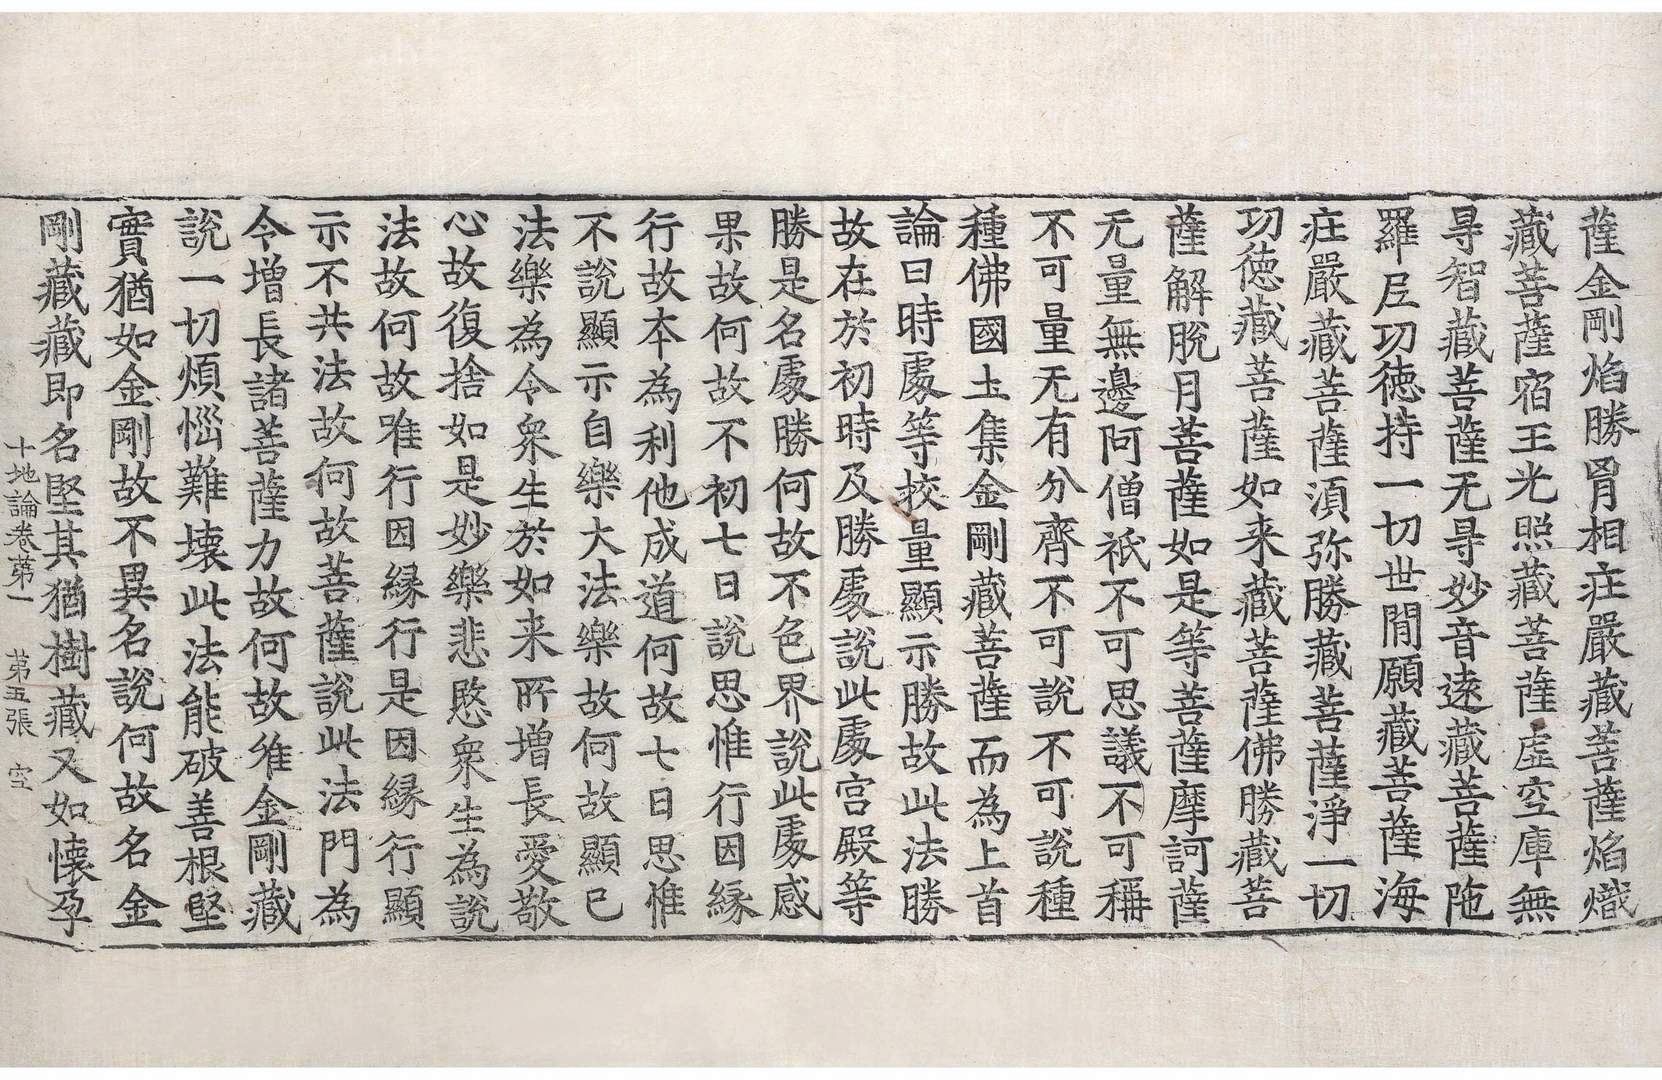 薩金剛焰勝胷相庄嚴藏菩薩焰熾
藏菩薩宿王光照藏菩薩虛空庫無
㝵智藏菩薩无㝵妙音遠藏菩薩陁
羅尼功德持一切世間願藏菩薩海
庄嚴藏菩薩湏弥勝藏菩薩淨一切
功德藏菩薩如来藏菩薩佛勝藏菩
薩解脫月菩薩如是等菩薩摩訶薩
无量無邊阿僧祇不可思議不可稱
不可量无有分齊不可說不可說種
種佛國𡈽集金剛藏菩薩而為上首
論曰時處等挍量顯示勝故此法勝
故在於初時及勝處說此處宮殿等
勝是名處勝何故不色界說此處感
果故何故不初七日說思惟行因縁
行故本為利他成道何故七日思惟
不說顯示自樂大法樂故何故顯已
法樂為令衆生於如来所增長愛敬
心故復捨如是妙樂悲愍衆生為說
法故何故唯行因縁行是因縁行顯
示不共法故何故菩薩說此法門為
令增長諸菩薩力故何故唯金剛藏
說一切煩惱難壞此法能破善根堅
實猶如金剛故不異名說何故名金
剛藏藏即名堅其猶樹藏又如懐孕
十地論卷第一　第五張　空